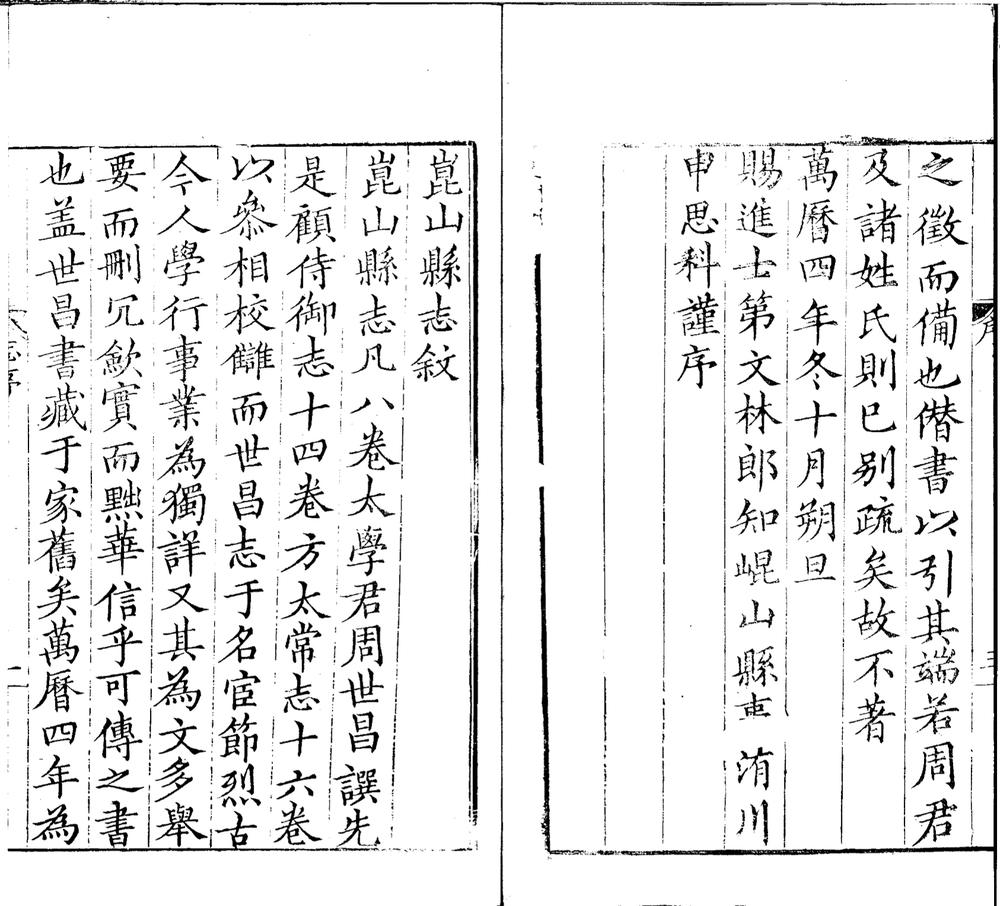 之徵而備也僣書以引其端若周君
及諸姓氏則已别疏矣故不著
萬曆四年冬十月朔旦
賜進士第文林郎知崐山縣事洧川
申思科謹序
崑山縣志敘
崑山縣志凡八卷太學君周世昌譔先
是顧侍御志十四卷方太常志十六卷
以叅相校讎而世昌志于名宦節烈古
今人學行事業為獨詳又其為文多舉
要而刪冗歛實而黜華信乎可傳之書
也盖世昌書藏于家舊矣萬曆四年為